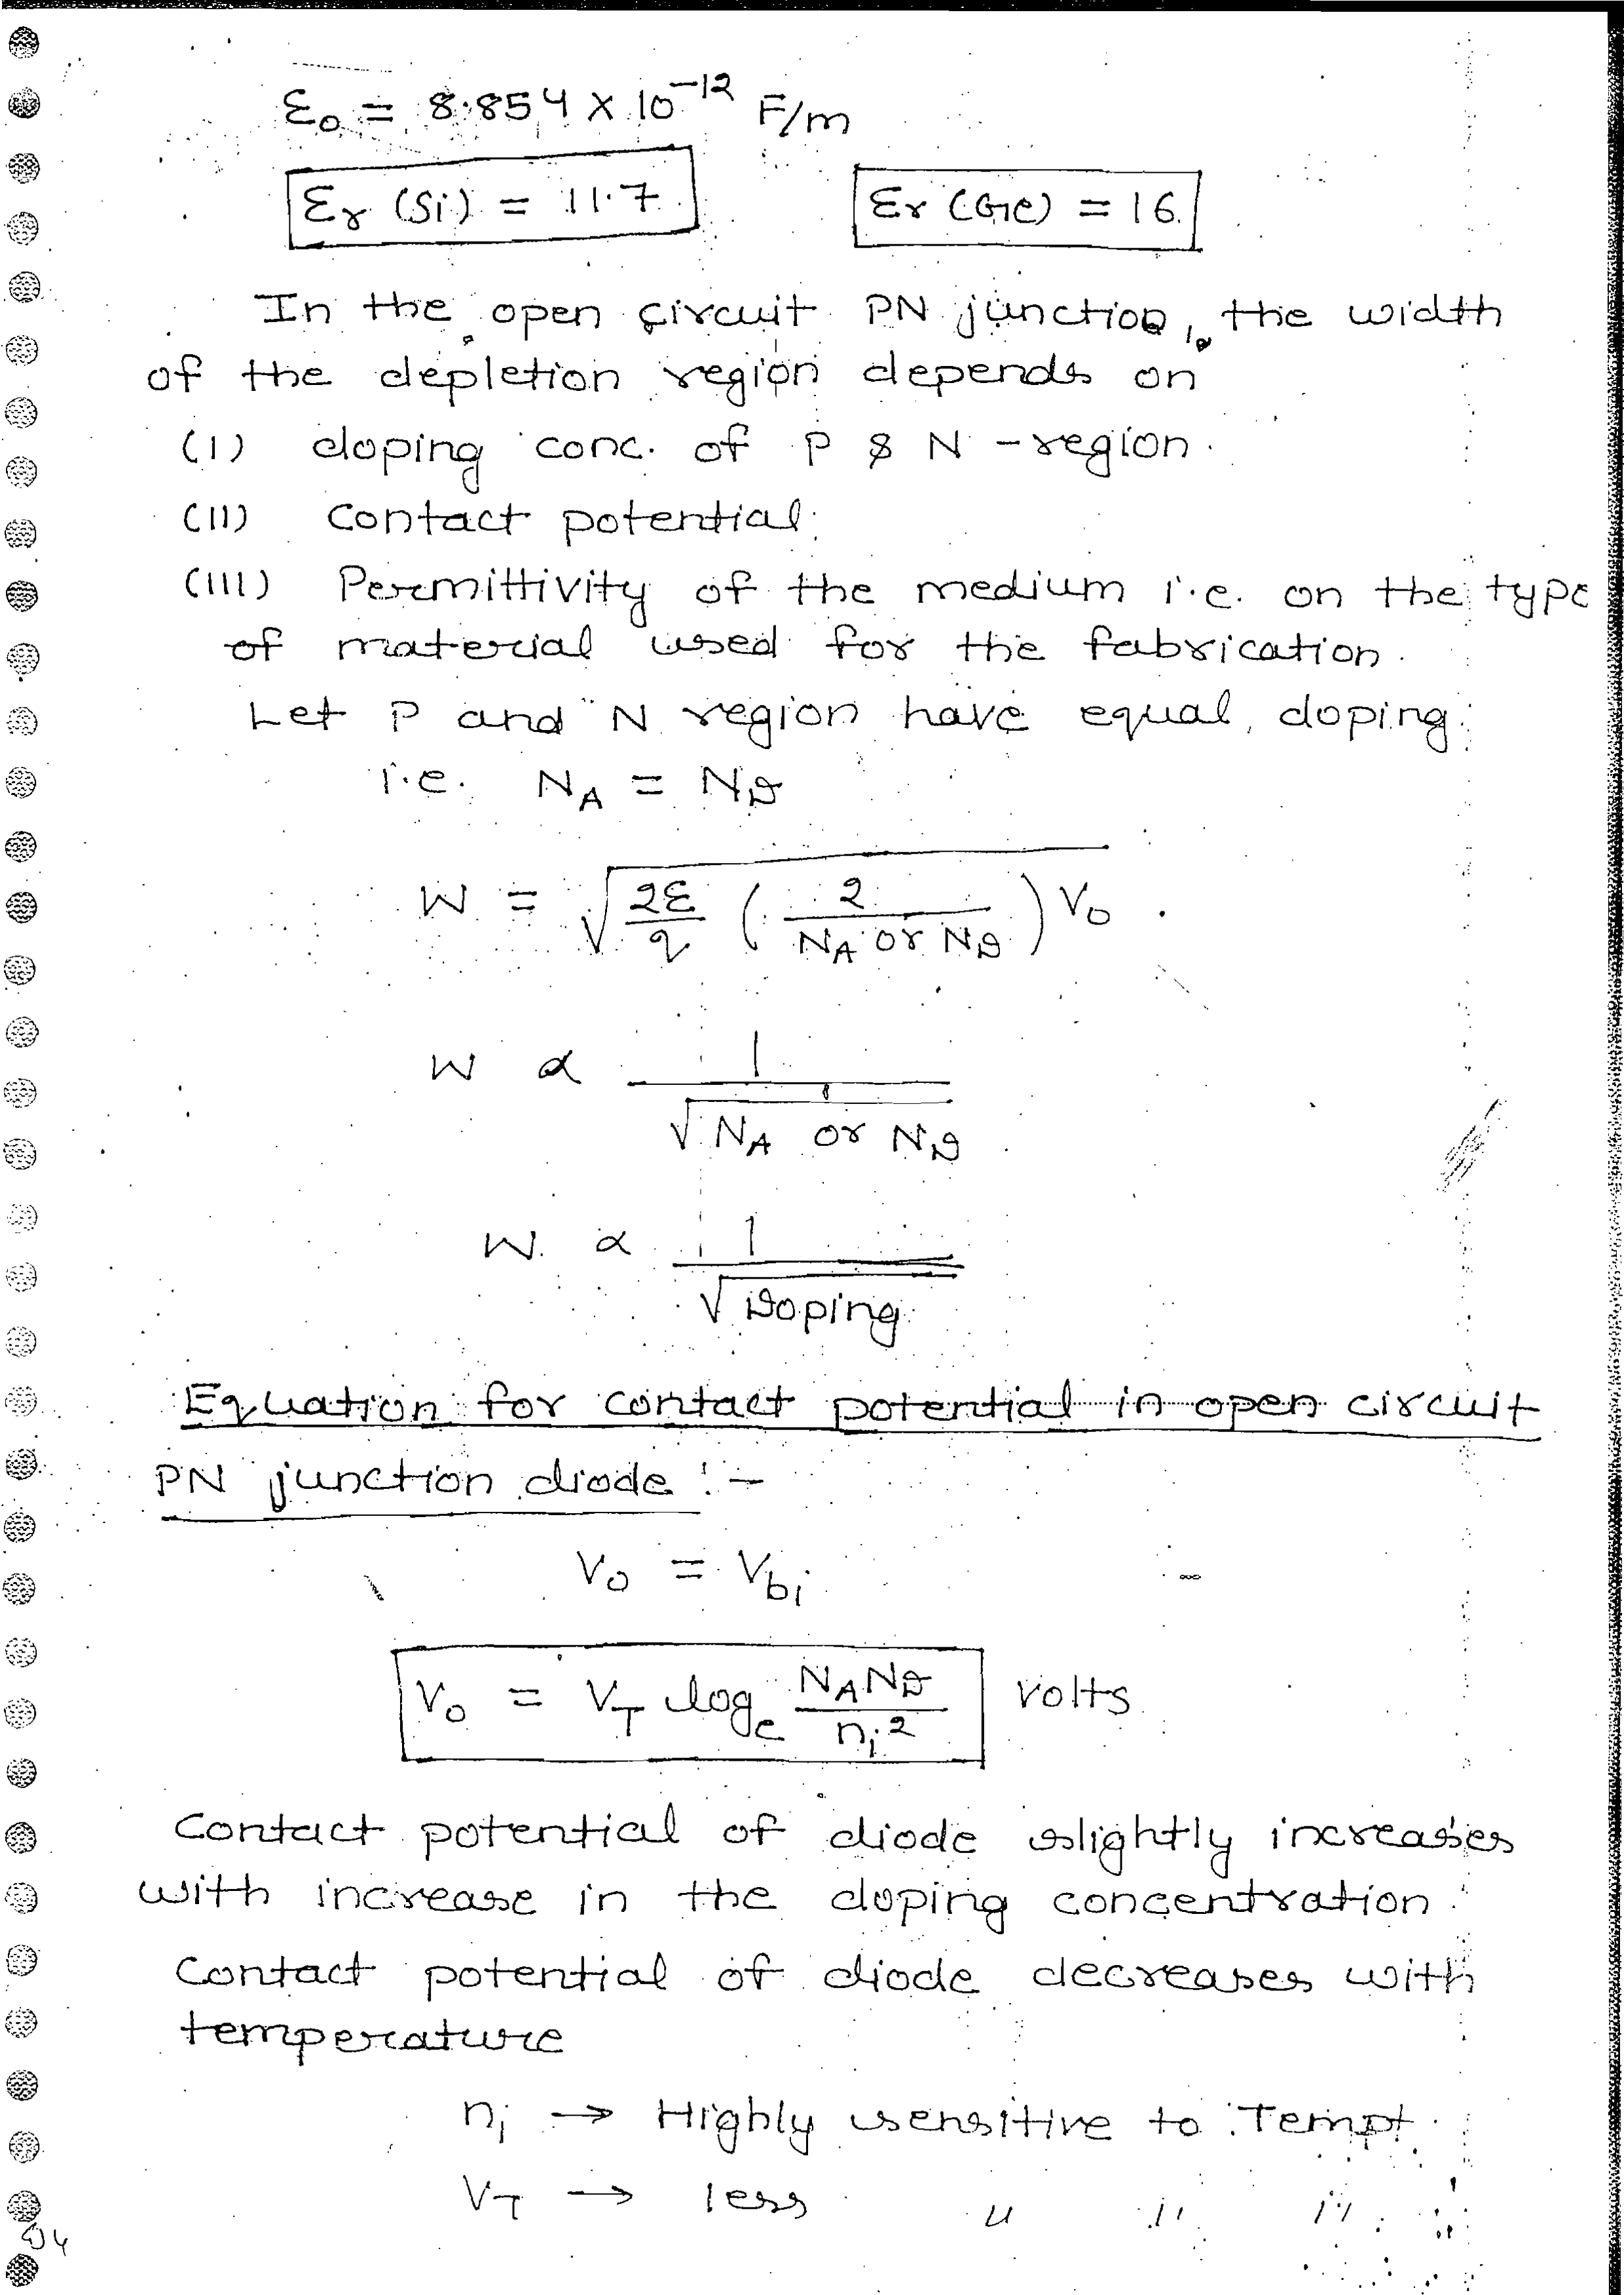 ε₀ = 8.854 × 10⁻¹² F/m
εr (Si) = 11.7 εr (Ge) = 16
In the open circuit PN junction, the width
of the depletion region depends on
(I) doping conc. of P & N - region.
(II) Contact potential.
(III) Permittivity of the medium i.e. on the type
of material used for the fabrication.
Let P and N region have equal doping.
i.e. N_A = N_D
W = √(2ε/q (2/(N_A or N_D)) V₀)
W ∝ 1/√(N_A or N_D)
W ∝ 1/√Doping
Equation for contact potential in open circuit
PN junction diode :-
V₀ = V_bi
V₀ = V_T log_e (N_A N_D / n_i²) volts
Contact potential of diode slightly increases
with increase in the doping concentration.
Contact potential of diode decreases with
temperature
n_i → Highly sensitive to Tempt.
V_T → less " " "